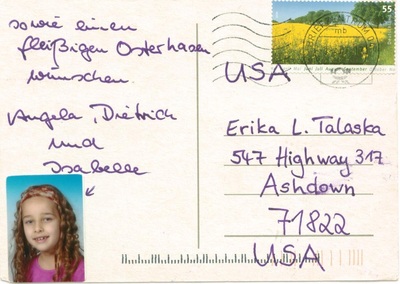 sowie einen
fleißigen Osterhasen
wünschen.
Angela, Dietrich
und
Isabelle
55
mb
USA
Erika L. Talaska
547 Highway 317
Ashdown
71822
USA